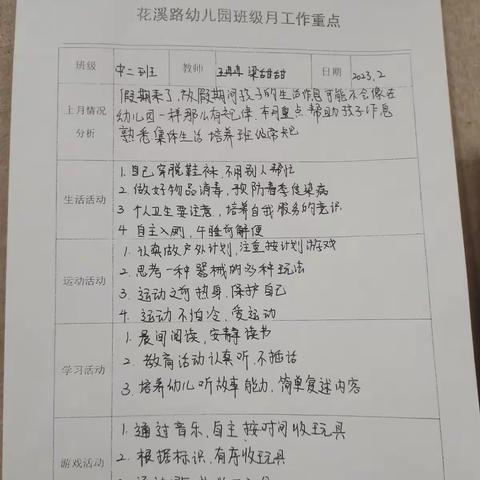 花溪路幼儿园班级月工作重点
班级 中二班 教师 王冉冉 梁甜甜 日期 2023.2
上月情况分析
假期来了,放假期间孩子的生活作息可能不会像在
幼儿园一样那么有规律.本月重点帮助孩子作息
熟悉集体生活 培养班级常规
生活活动
1.自己穿脱鞋袜,不用别人帮忙
2.做好物品消毒,预防春季传染病
3.个人卫生要注意,培养自我服务的意识
4.自主入厕,午睡前解便
运动活动
1.认真做户外计划,注重按计划游戏
2.思考一种器械的多种玩法
3.运动之前热身,保护自己
4.运动不怕冷,爱运动
学习活动
1.晨间阅读,安静读书
2.教育活动认真听,不插话
3.培养幼儿听故事能力,简单复述内容
游戏活动
1.通过音乐,自主按时间收玩具
2.根据标识,有序收玩具